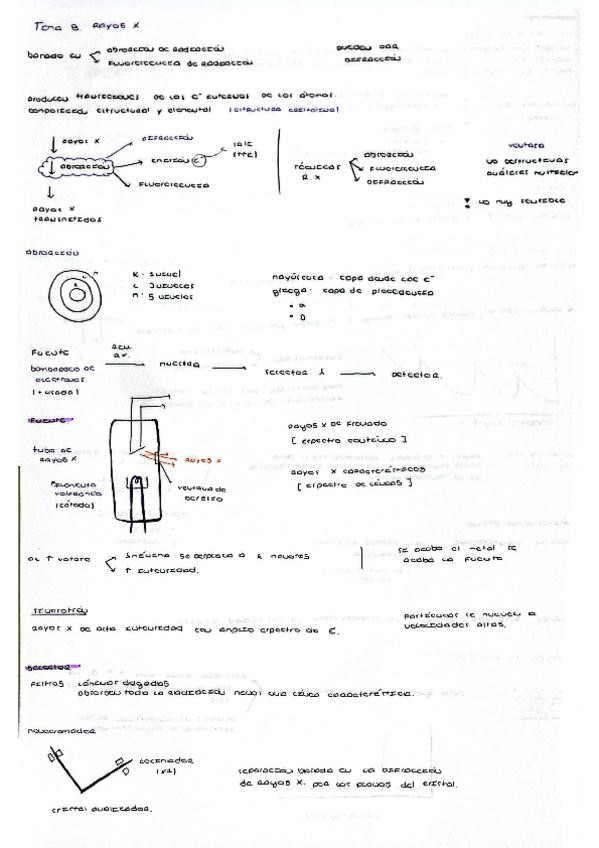 Tema 8. Rayos X
basado en
absorción de radiación
fluorescencia de radiación
pueden dar
difracción
producen transiciones de los e⁻ internos de los átomos.
composición estructural y elemental (estructura cristalina)
rayos X
difracción
absorción
emisión e⁻
fluorescencia
rayos X
transmitidos
técnicas
R X
absorción
fluorescencia
difracción
ventaja
no destructivas
no muy sensible
absorción
K - 1 nivel
L 3 niveles
M: 5 niveles
mayúscula: capa donde cae e⁻
griega: capa de procedencia
• α
• β
Fuente
bombardeo de
electrones
(+ usada)
muestra
selector λ
detector.
Fuente
tubo de
rayos X
filamento
wolframio
(cátodo)
rayos X
ventana de
berilio
rayos X de frenado
[espectro continuo]
rayos X característicos
[espectro de líneas]
al ↑ voltaje
λ mínima se desplaza a λ menores
↑ intensidad.
se acaba el metal se
acaba la fuente
Sincrotrón
rayos X de alta intensidad con amplio espectro de E.
partículas se mueven a
velocidades altas.
Selector
Filtros láminas delgadas
absorben toda la radiación menos una línea característica.
Monocromador
colimador
(x2)
cristal analizador.
separación basada en la difracción
de rayos X por los planos del cristal.